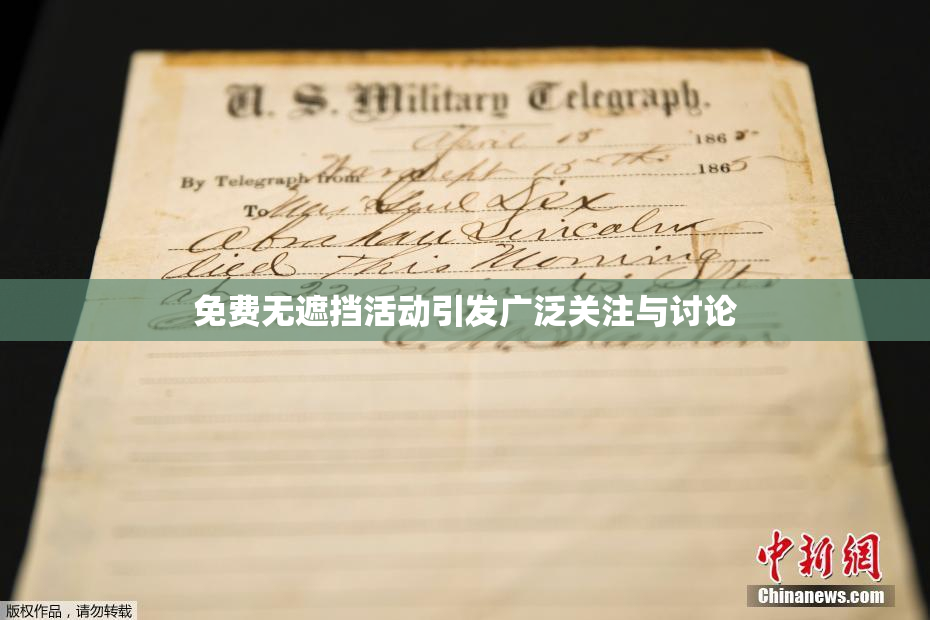 U. S. Military Telegraph.
April 15 1865
By Telegraph from War Dept 15th 1865
To Maj Genl Dix
Abraham Lincoln
died This Morning
at 22 minutes after
免费无遮挡活动引发广泛关注与讨论
中新网
Chinanews.com
版权作品，请勿转载